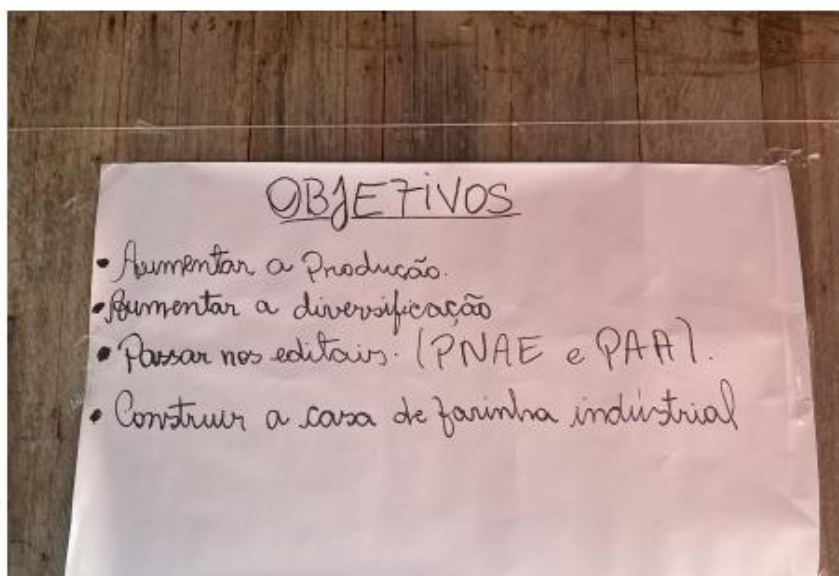 OBJETIVOS
• Aumentar a Produção.
• Aumentar a diversificação
• Passar nos editais. (PNAE e PAA).
• Construir a casa de farinha indústrial